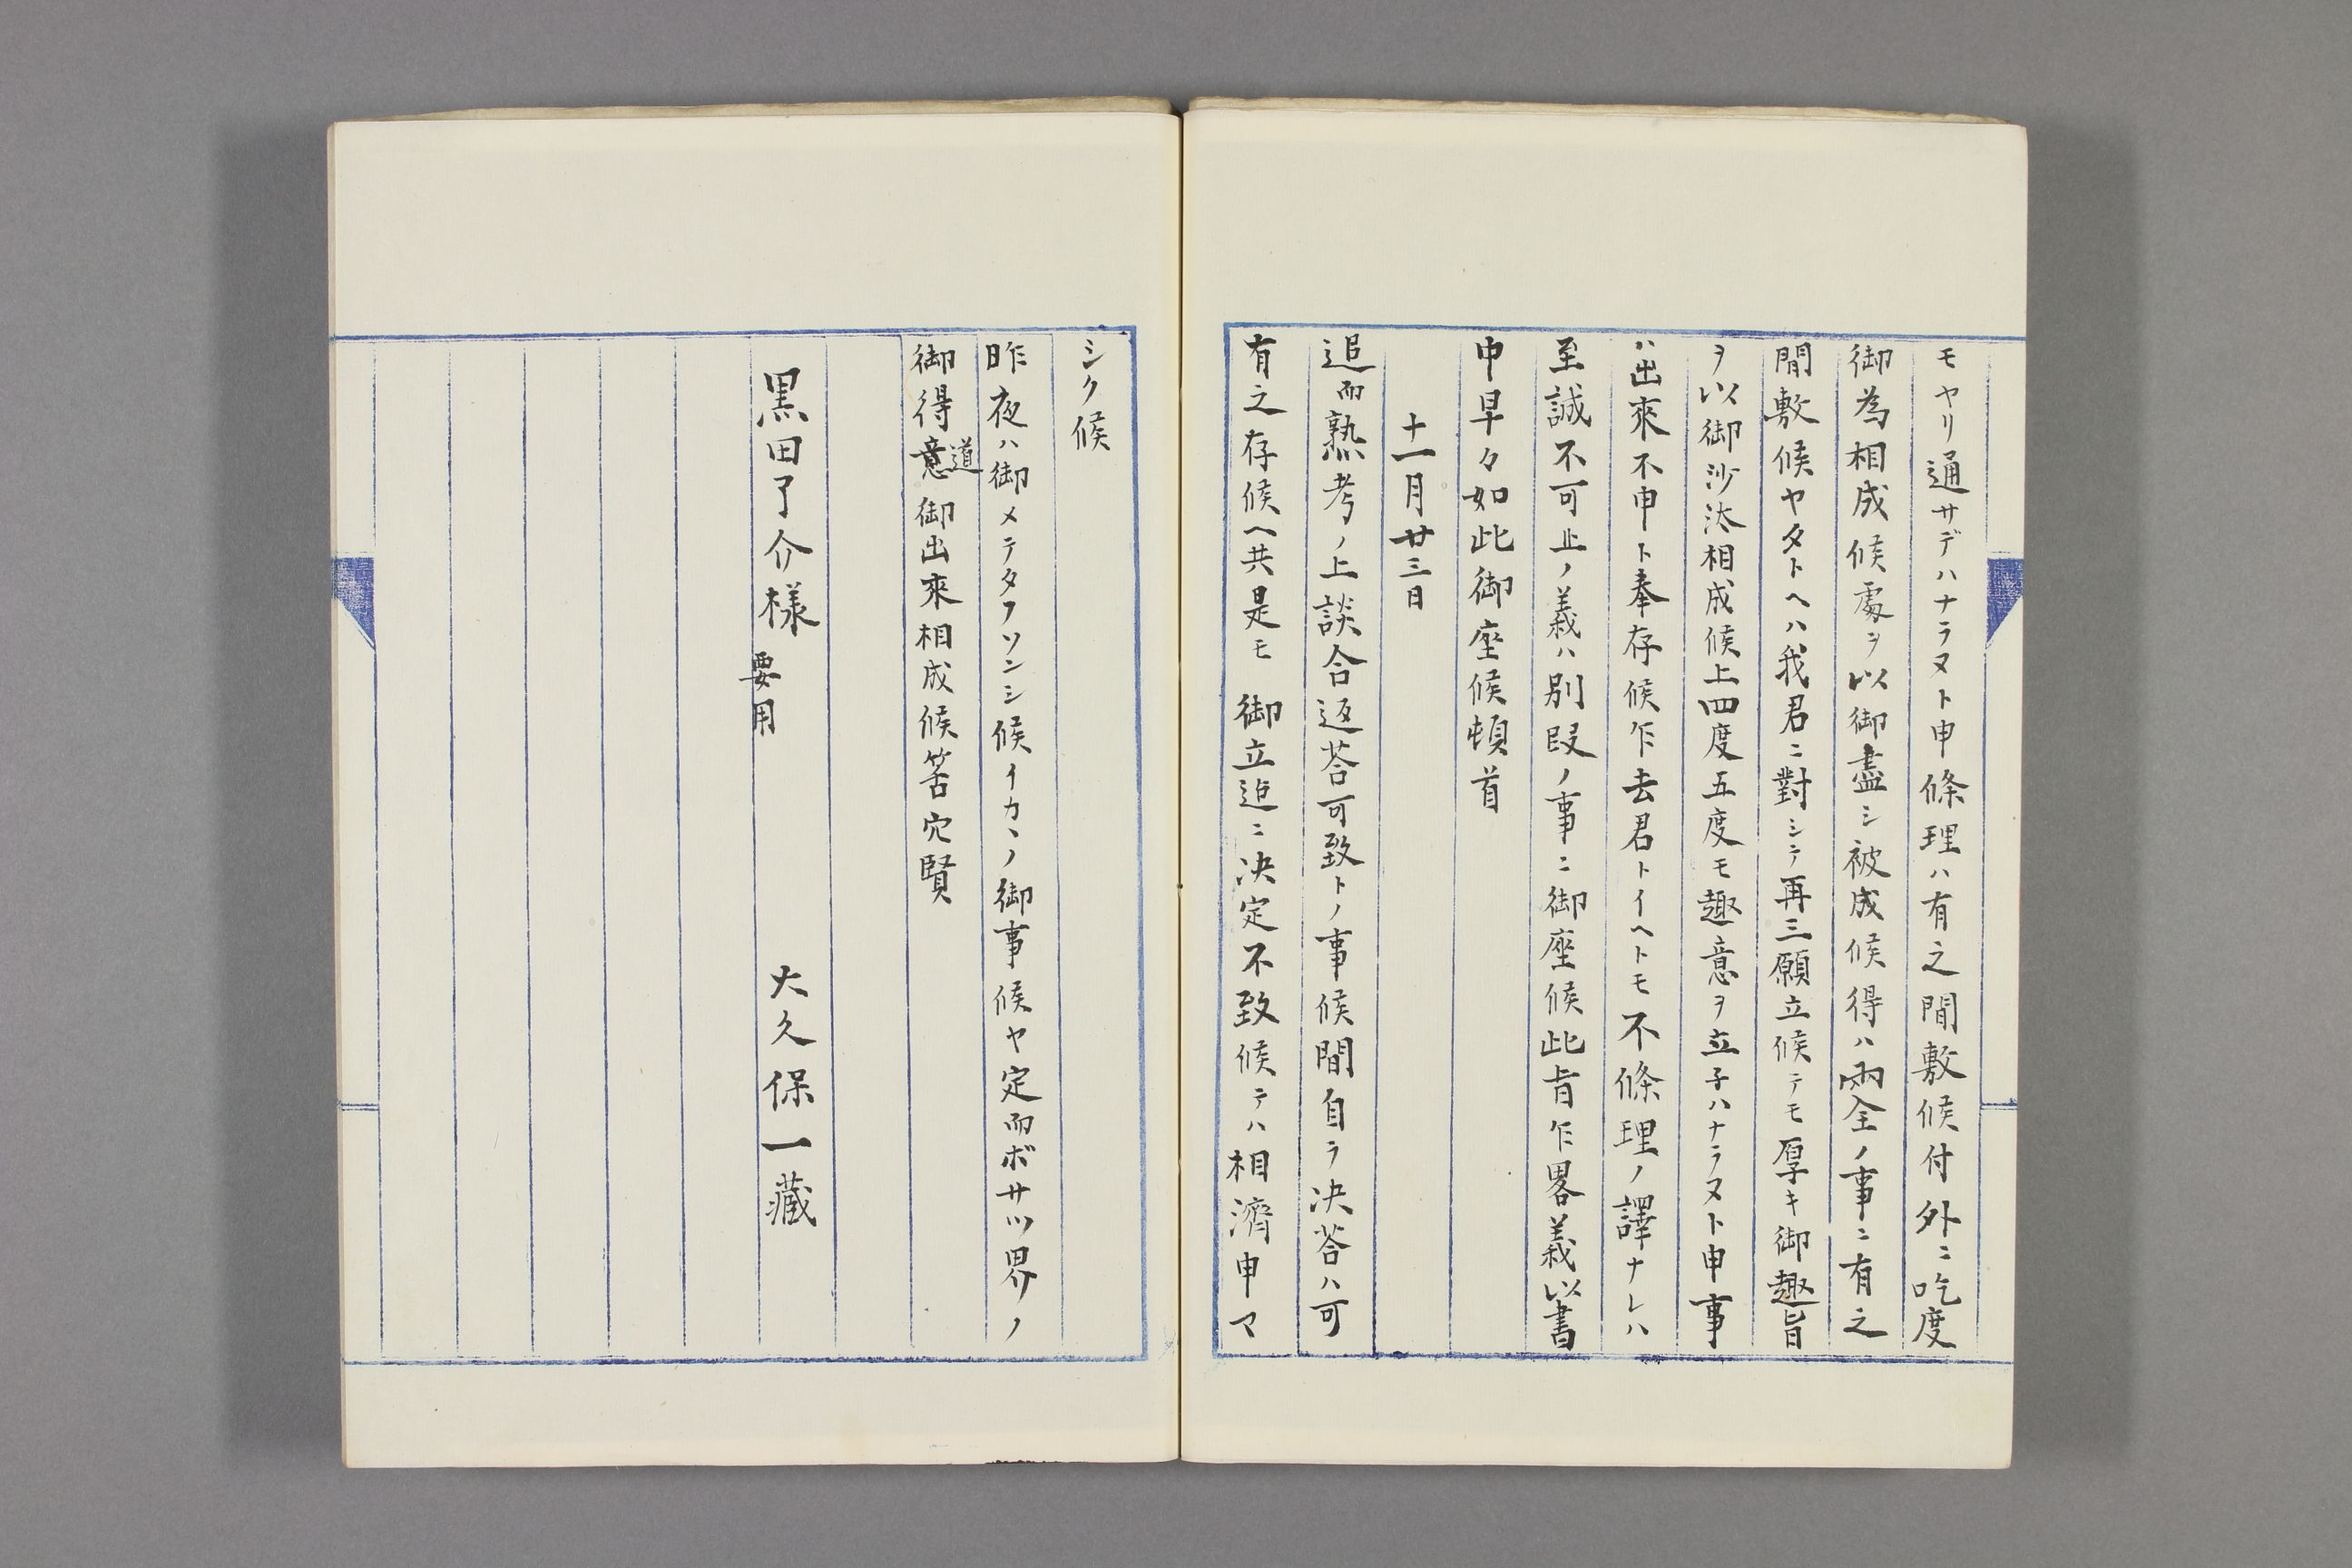 モヤリ通サデハナラヌト申條理ハ有之間敷候付外ニ吃度
御為相成候處ヲ以御盡シ被成候得ハ兩全ノ事ニ有之
間敷候ヤタトヘハ我君ニ對シテ再三願立候テモ厚キ御趣旨
ヲ以御沙汰相成候上四度五度モ趣意ヲ立子ハナラヌト申事
ハ出來不申ト奉存候乍去君トイヘトモ不條理ノ譯ナレハ
至誠不可止ノ義ハ別段ノ事ニ御座候此旨乍畧義以書
申早々如此御座候頓首
十一月廿三日
追而熟考ノ上談合返荅可致トノ事候間自ラ決荅ハ可
有之存候ヘ共是モ 御立迄ニ決定不致候テハ相濟申マ
シク候
昨夜ハ御メテタフソンシ候イカヽノ御事候ヤ定而ボサツ界ノ
御得意道御出來相成候筈穴賢
黒田了介様 要用
大久保一藏